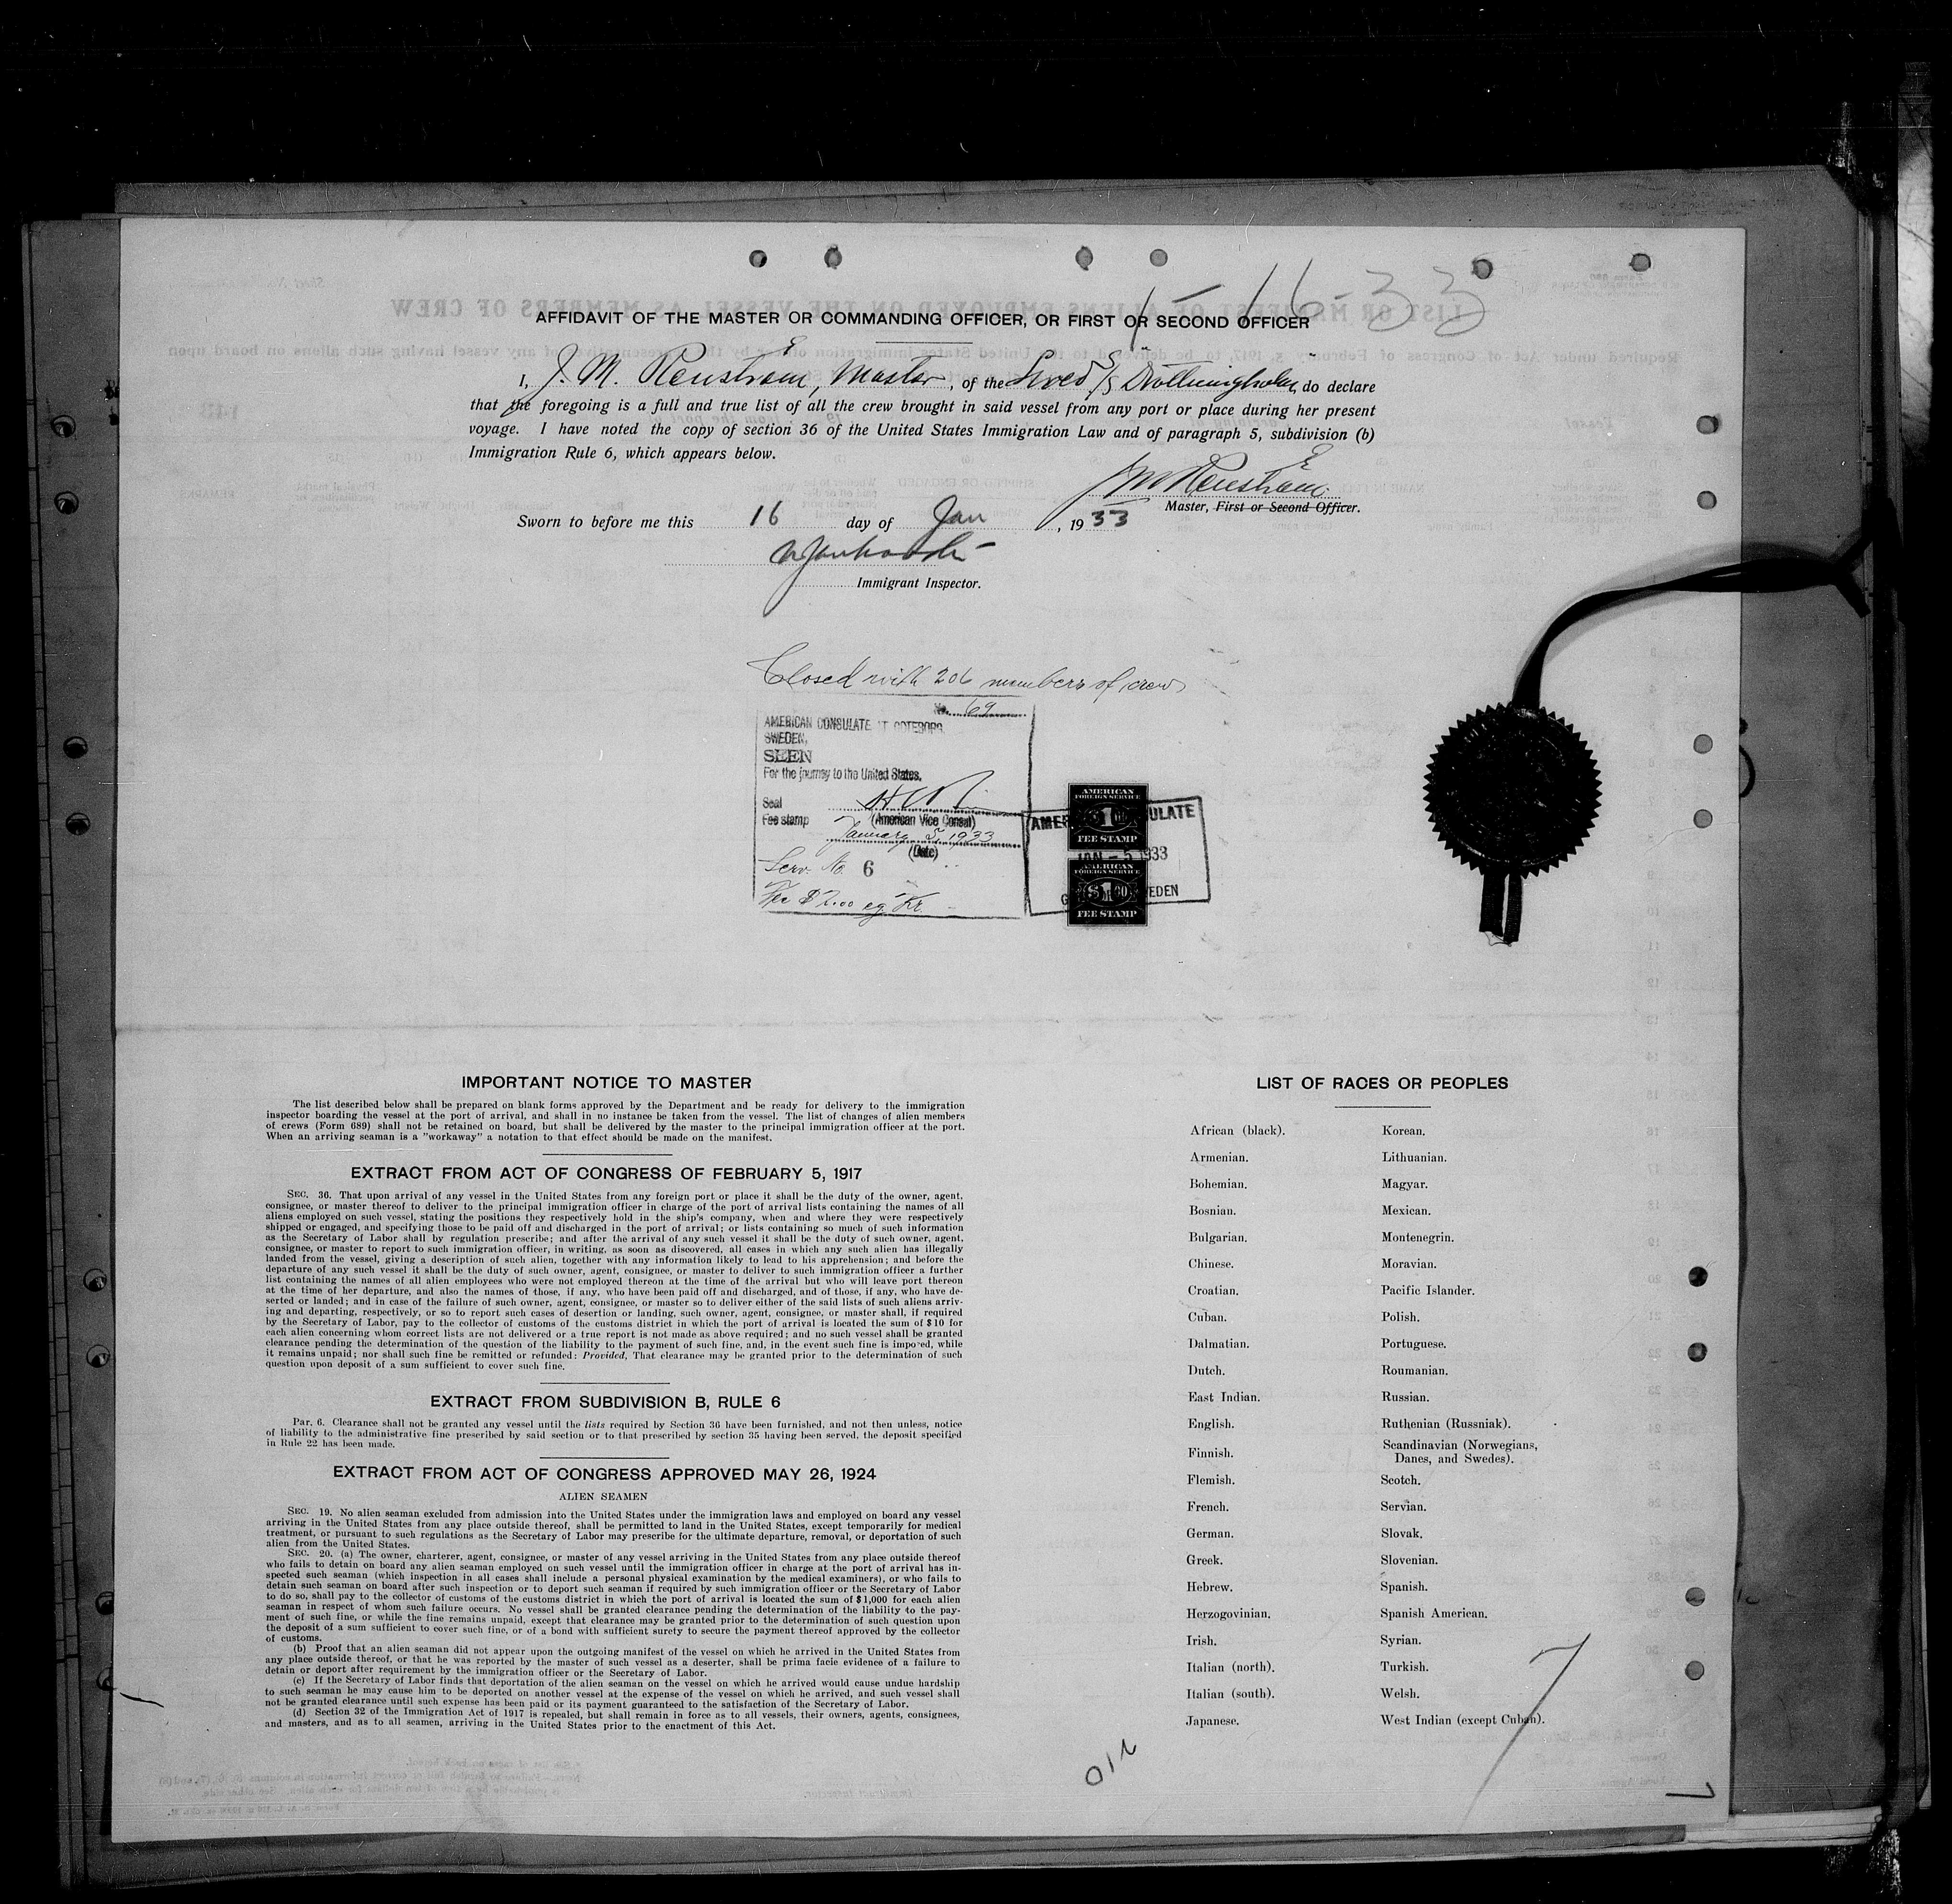 1-16-33
AFFIDAVIT OF THE MASTER OR COMMANDING OFFICER, OR FIRST OR SECOND OFFICER
I, J. M. Renström, Master, of the Swed S/S "Drottningholm", do declare
that the foregoing is a full and true list of all the crew brought in said vessel from any port or place during her present
voyage. I have noted the copy of section 36 of the United States Immigration Law and of paragraph 5, subdivision (b)
Immigration Rule 6, which appears below.
JM Renström
Master, First or Second Officer.
Sworn to before me this 16 day of Jan, 1933
Immigrant Inspector.
Closed with 206 members of crew
No. 69
AMERICAN CONSULATE AT GOTEBORG
SWEDEN,
SEEN
For the journey to the United States.
Seal
Fee stamp (American Vice Consul)
January 5, 1933
(Date)
Serv. No. 6
Fee $2.00 eq. Kr.
AMERICAN
FOREIGN SERVICE
$1.00
FEE STAMP
AMERICAN
FOREIGN SERVICE
$1.00
FEE STAMP
AMER ULATE
JAN - 5 1933
G EDEN
IMPORTANT NOTICE TO MASTER
The list described below shall be prepared on blank forms approved by the Department and be ready for delivery to the immigration
inspector boarding the vessel at the port of arrival, and shall in no instance be taken from the vessel. The list of changes of alien members
of crews (Form 689) shall not be retained on board, but shall be delivered by the master to the principal immigration officer at the port.
When an arriving seaman is a "workaway" a notation to that effect should be made on the manifest.
EXTRACT FROM ACT OF CONGRESS OF FEBRUARY 5, 1917
SEC. 36. That upon arrival of any vessel in the United States from any foreign port or place it shall be the duty of the owner, agent,
consignee, or master thereof to deliver to the principal immigration officer in charge of the port of arrival lists containing the names of all
aliens employed on such vessel, stating the positions they respectively hold in the ship's company, when and where they were respectively
shipped or engaged, and specifying those to be paid off and discharged in the port of arrival; or lists containing so much of such information
as the Secretary of Labor shall by regulation prescribe; and after the arrival of any such vessel it shall be the duty of such owner, agent,
consignee, or master to report to such immigration officer, in writing, as soon as discovered, all cases in which any such alien has illegally
landed from the vessel, giving a description of such alien, together with any information likely to lead to his apprehension; and before the
departure of any such vessel it shall be the duty of such owner, agent, consignee, or master to deliver to such immigration officer a further
list containing the names of all alien employees who were not employed thereon at the time of the arrival but who will leave port thereon
at the time of her departure, and also the names of those, if any, who have been paid off and discharged, and of those, if any, who have de-
serted or landed; and in case of the failure of such owner, agent, consignee, or master so to deliver either of the said lists of such aliens arriv-
ing and departing, respectively, or so to report such cases of desertion or landing, such owner, agent, consignee, or master shall, if required
by the Secretary of Labor, pay to the collector of customs of the customs district in which the port of arrival is located the sum of $10 for
each alien concerning whom correct lists are not delivered or a true report is not made as above required; and no such vessel shall be granted
clearance pending the determination of the question of the liability to the payment of such fine, and, in the event such fine is imposed, while
it remains unpaid; nor shall such fine be remitted or refunded: Provided, That clearance may be granted prior to the determination of such
question upon deposit of a sum sufficient to cover such fine.
EXTRACT FROM SUBDIVISION B, RULE 6
Par. 6. Clearance shall not be granted any vessel until the lists required by Section 36 have been furnished, and not then unless, notice
of liability to the administrative fine prescribed by said section or to that prescribed by section 35 having been served, the deposit specified
in Rule 22 has been made.
EXTRACT FROM ACT OF CONGRESS APPROVED MAY 26, 1924
ALIEN SEAMEN
SEC. 19. No alien seaman excluded from admission into the United States under the immigration laws and employed on board any vessel
arriving in the United States from any place outside thereof, shall be permitted to land in the United States, except temporarily for medical
treatment, or pursuant to such regulations as the Secretary of Labor may prescribe for the ultimate departure, removal, or deportation of such
alien from the United States.
SEC. 20. (a) The owner, charterer, agent, consignee, or master of any vessel arriving in the United States from any place outside thereof
who fails to detain on board any alien seaman employed on such vessel until the immigration officer in charge at the port of arrival has in-
spected such seaman (which inspection in all cases shall include a personal physical examination by the medical examiners), or who fails to
detain such seaman on board after such inspection or to deport such seaman if required by such immigration officer or the Secretary of Labor
to do so, shall pay to the collector of customs of the customs district in which the port of arrival is located the sum of $1,000 for each alien
seaman in respect of whom such failure occurs. No vessel shall be granted clearance pending the determination of the liability to the pay-
ment of such fine, or while the fine remains unpaid, except that clearance may be granted prior to the determination of such question upon
the deposit of a sum sufficient to cover such fine, or of a bond with sufficient surety to secure the payment thereof approved by the collector
of customs.
(b) Proof that an alien seaman did not appear upon the outgoing manifest of the vessel on which he arrived in the United States from
any place outside thereof, or that he was reported by the master of such vessel as a deserter, shall be prima facie evidence of a failure to
detain or deport after requirement by the immigration officer or the Secretary of Labor.
(c) If the Secretary of Labor finds that deportation of the alien seaman on the vessel on which he arrived would cause undue hardship
to such seaman he may cause him to be deported on another vessel at the expense of the vessel on which he arrived, and such vessel shall
not be granted clearance until such expense has been paid or its payment guaranteed to the satisfaction of the Secretary of Labor.
(d) Section 32 of the Immigration Act of 1917 is repealed, but shall remain in force as to all vessels, their owners, agents, consignees,
and masters, and as to all seamen, arriving in the United States prior to the enactment of this Act.
LIST OF RACES OR PEOPLES
African (black). Korean.
Armenian. Lithuanian.
Bohemian. Magyar.
Bosnian. Mexican.
Bulgarian. Montenegrin.
Chinese. Moravian.
Croatian. Pacific Islander.
Cuban. Polish.
Dalmatian. Portuguese.
Dutch. Roumanian.
East Indian. Russian.
English. Ruthenian (Russniak).
Finnish. Scandinavian (Norwegians,
Danes, and Swedes).
Flemish. Scotch.
French. Servian.
German. Slovak.
Greek. Slovenian.
Hebrew. Spanish.
Herzogovinian. Spanish American.
Irish. Syrian.
Italian (north). Turkish.
Italian (south). Welsh.
Japanese. West Indian (except Cuban).
7